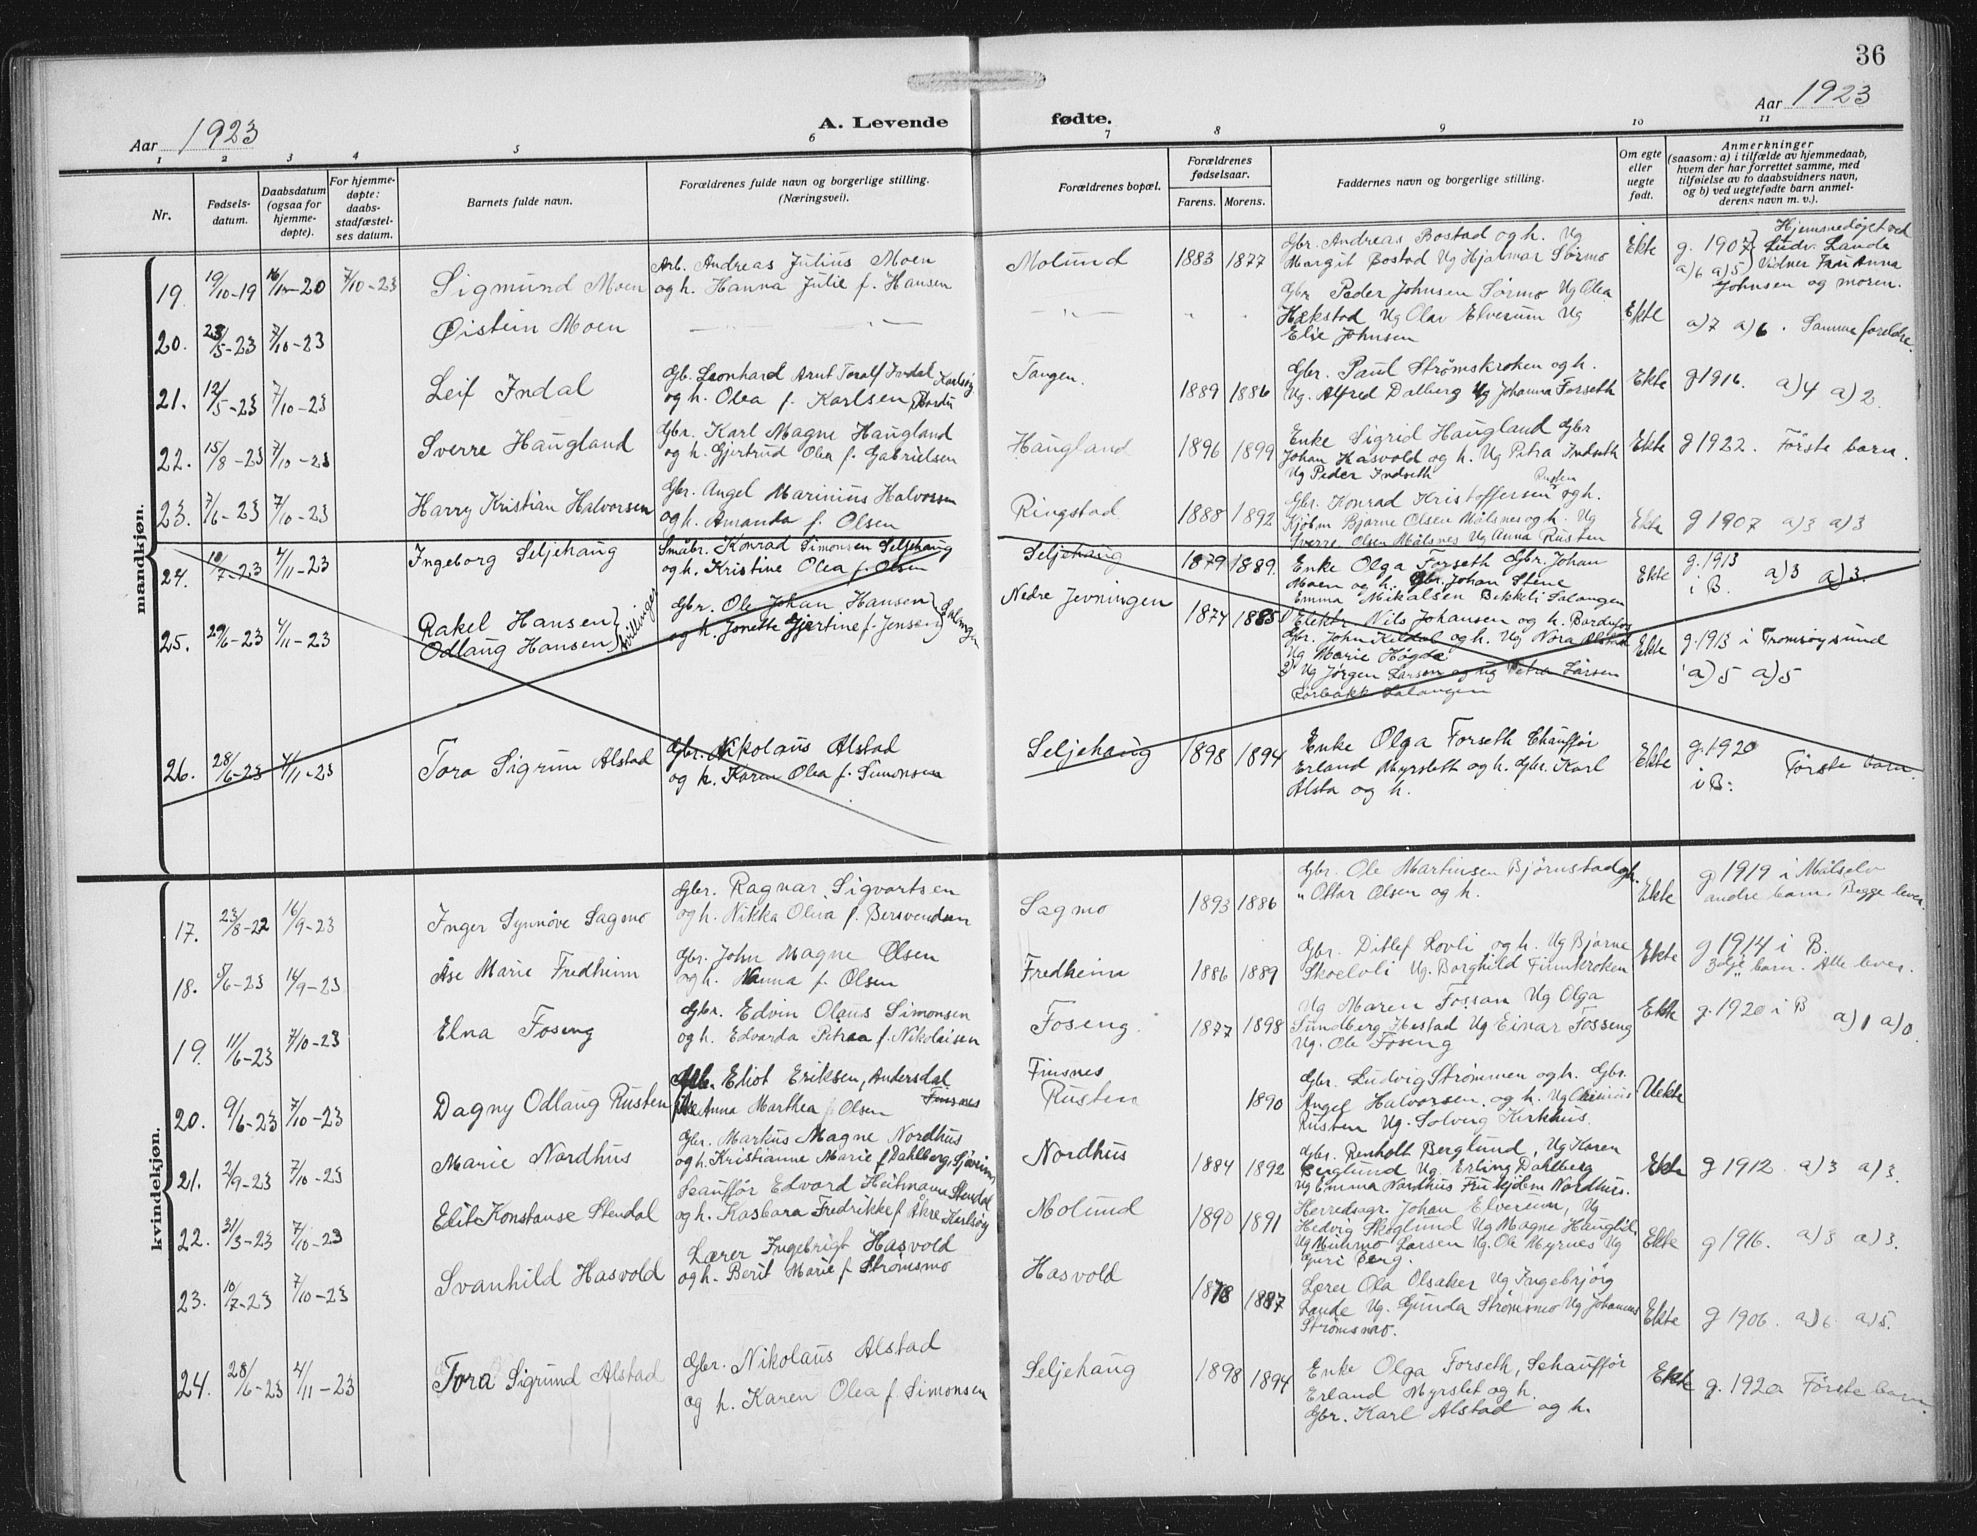 36
Aar 1923
A. Levende fødte.
Aar 1923
1 2 3 4 5 6 7 8 9 10 11
Nr.
Fødsels-
datum.
Daabsdatum
(ogsaa for
hjemme-
døpte).
For hjemme-
døpte:
daabs-
stadfæstel-
ses datum.
Barnets fulde navn.
Forældrenes fulde navn og borgerlige stilling.
(Næringsvei).
Forældrenes bopæl.
Forældrenes
fødselsaar.
Farens. Morens.
Faddernes navn og borgerlige stilling.
Om egte
eller
uegte
født.
Anmerkninger
(saasom: a) i tilfælde av hjemmedaab,
hvem der har forrettet samme, med
tilføielse av to daabsvidners navn,
og b) ved uegtefødte barn anmel-
derens navn m. v.).
mandkjøn.
19. 19/10-19 7/10-23 Sigmund Moen
Arb. Andreas Julius Moen
og h. Hanna Julie f. Hansen
Molund 1883 1877
Gbr. Andreas Bostad og h. Ug
Margit Bostad Ug Hjalmar Sørmo
Ekte g. 1907 a)6 a)5
Hjemmedøpt ved
Ludv. Lande
Vidner Fru Anna
Johnsen og moren.
20. 23/5-23 7/10-23 Øistein Moen
— " — " —
Gbr Peder Johnsen Sørmo Ug Olea
Hækstad Ug Olav Elverum Ug
Elise Johnsen
Ekte a)7 a)6. Samme foreldre.
21. 12/5-23 7/10-23 Leif Indal
Gb. Leonhard Arnt Toralf Indal Karlsøy
og h. Olea f. Karlsen Bardu
Tangen. 1889 1886
Gbr. Paul Strømskroken og h.
Ug. Alfred Dalberg Ug Johanna Forseth
Ekte g 1916. a)4 a)2.
22. 15/8-23 7/10-23 Sverre Haugland
Gbr. Karl Magne Haugland
og h. Gjertrud Olea f. Gabrielsen
Haugland 1896 1899
Enke Sigrid Haugland Gbr
Johan Hasvold og h. Ug Petra Indseth
Ug Peder Indseth
Ekte g 1922. Første barn.
23. 7/6-23 7/10-23 Harry Kristian Halvorsen
Gbr. Angel Marinius Halvorsen
og h. Amanda f. Olsen
Ringstad 1888 1892
Rusten
Gbr. Konrad Kristoffersen og h.
Kjøbm Bjarne Olsen Målsnes og h. Ug
Sverre Olsen Målsnes Ug Anna Rusten
Ekte g 1907 a)3 a)3
24. 10/7-23 4/11-23 Ingeborg Seljehaug
Småbr. Konrad Simonsen Seljehaug
og h. Kristine Olea f. Olsen
Seljehaug 1879 1889.
Enke Olga Forseth Gbr. Johan
Moen og h. Gbr. Johan Stene
Emma Mikalsen Bekkeli Salangen
Ekte g. 1913 i B. a)3 a)3.
25. 29/6-23 4/11-23 Rakel Hansen
Odlaug Hansen } tvillinger
Gbr. Ole Johan Hansen
og h. Jonette Gjertine f. Jensen } Salangen
Nedre Jevningen 1874 1885
1) Elektr. Nils Johansen og h. Bardufoss
Gbr. John Kildal og h. Ug Nora Alstad
Ug Marie Høgda
2) Ug Jørgen Larsen og Ug Petra Larsen
Rorbakk Salangen
Ekte g. 1913 i Tromsøysund
a)5 a)5
26. 28/6-23 4/11-23 Tora Sigrun Alstad
Gbr. Nikolaus Alstad
og h. Karen Olea f. Simonsen
Seljehaug 1898 1894
Enke Olga Forseth Chauffør
Erland Myrsleth og h. Gbr. Karl
Alsta og h.
Ekte g. 1920 i B: Første barn.
kvindekjøn.
17. 23/8-22 16/9-23 Inger Synnøve Sagmo
Gbr. Ragnar Sigvartsen
og h. Nikka Olvia f. Bersvendsen
Sagmo 1893 1886
Gbr. Ole Martinsen Bjørnstad og h.
" Ottar Olsen og h.
Ekte g 1919 i Målselv
andre barn. Begge lever.
18. 5/6-23 16/9-23 Åse Marie Fredheim
Gbr. John Magne Olsen
og h. Nanna f. Olsen
Fredheim 1886 1889
Gbr. Ditlef Lovli og h. Ug Bjarne
Skoelvli Ug. Borghild Finnkroken
Ekte g 1914 i B.
3dje barn. Alle lever.
19. 11/6-23 7/10-23 Elna Foseng
Gbr. Edvin Olaus Simonsen
og h. Edvarda Petraa f. Nikolaisen
Foseng. 1877 1898
Ug Maren Fossan Ug Olga
Sundberg Hestad Ug Einar Fosseng
Ug. Ole Foseng
Ekte g. 1920 i B a)1 a)0
20. 9/6-23 7/10-23 Dagny Odlaug Rusten
Arb. Eliot Eriksen, Andersdal
Anna Marthea f Olsen Finsnes
Finsnes
Rusten 1890
Gbr. Ludvig Strømmen og h. Gbr.
Angel Halvorsen og h. Ug
Rusten Ug. Solveig Kirkhus.
Uekte
21. 2/9-23 7/10-23 Marie Nordhus
Gbr. Markus Magne Nordhus
og h. Kristianne Marie f. Dahlberg, Sjøveien
Nordhus 1884 1892
Gbr. Renholt Berglund, Ug Karen
Berglund Ug. Erling Dahlberg
Ug Emma Nordhus Fru Kjøbm Nordhus.
Ekte g 1912. a)3 a)3.
22. 31/3-23 7/10-23 Elit Konstanse Stendal
Seauffør Edvard Heitmann Stendal
og h. Kasbara Fredrikke f. Åkre Karlsøy
Molund 1890 1891
Herredsagr. Johan Elverum, Ug
Hedvig Skoglund Ug Magne Haugli
Ug Mimmo Larsen Ug. Ole Myrnes Ug
Guri Berg.
Ekte g 1916. a)3 a)3.
23. 10/7-23 7/10-23 Svanhild Hasvold
Lærer Ingebrigt Hasvold
og h. Berit Marie f. Strømsmo
Hasvold 1878 1887
Lærer Ola Olsaker Ug Ingebrjørg
Lande Ug. Gunda Strømsmo Ug Johannes
Strømsmo.
Ekte g 1906. a)6 a)5.
24. 28/6-23 4/11-23 Tora Sigrund Alstad
Gbr. Nikolaus Alstad
og h. Karen Olea f. Simonsen
Seljehaug 1898 1894
Enke Olga Forseth, Schauffør
Erland Myrslet og h.
Gbr. Karl Alstad og h.
Ekte g. 1920 Første barn.